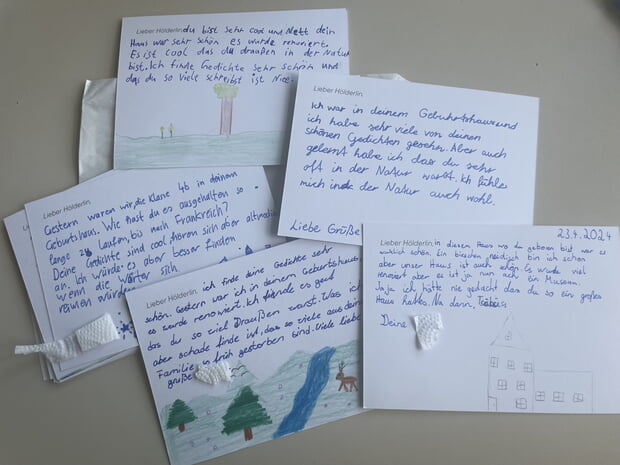 Lieber Hölderlin, du bist sehr cool und Nett dein
Haus war sehr schön es wurde renoviert.
Es ist cool das du draußen in der Natur
bist. Ich finde Gedichte sehr schön und
das du so viele schreibst ist Nice.
Lieber Hölderlin,
Ich war in deinem Geburtshaus und
ich habe sehr viele von deinen
schönen Gedichten gesehen. Aber auch
gelernt habe ich dass du sehr
oft in der Natur warst. Ich fühle
mich in der Natur auch wohl.
Liebe Grüße
Lieber Hölderlin,
Gestern waren wir, die Klasse 4b in deinem
Geburtshaus. Wie hast du es ausgehalten so
lange zu laufen, bis nach Frankreich?
Deine Gedichte sind cool, hören sich aber altmodisch
an. Ich würde es aber besser finden
wenn die Wörter sich
reimen würden
Lieber Hölderlin, ich finde deine Gedichte sehr
schön. Gestern war ich in deinem Geburtshaus,
es wurde renoviert. Ich finde es gut
das du so viel Draußen warst. Was ich
aber schade finde ist, das so viele aus deiner
Familie so früh gestorben sind. Viele liebe
grüße
23.4.2024
Lieber Hölderlin, in diesem Haus wo du geboren bist war es
wirklich schön. Ein bisschen neidisch bin ich schon
aber unser Haus ist auch schön. Es wurde viel
renoviert aber es ist ja nun auch ein Museum.
Ja ja ich hätte nie gedacht das du so ein großes
Haus hattes. Na dann,
Deine